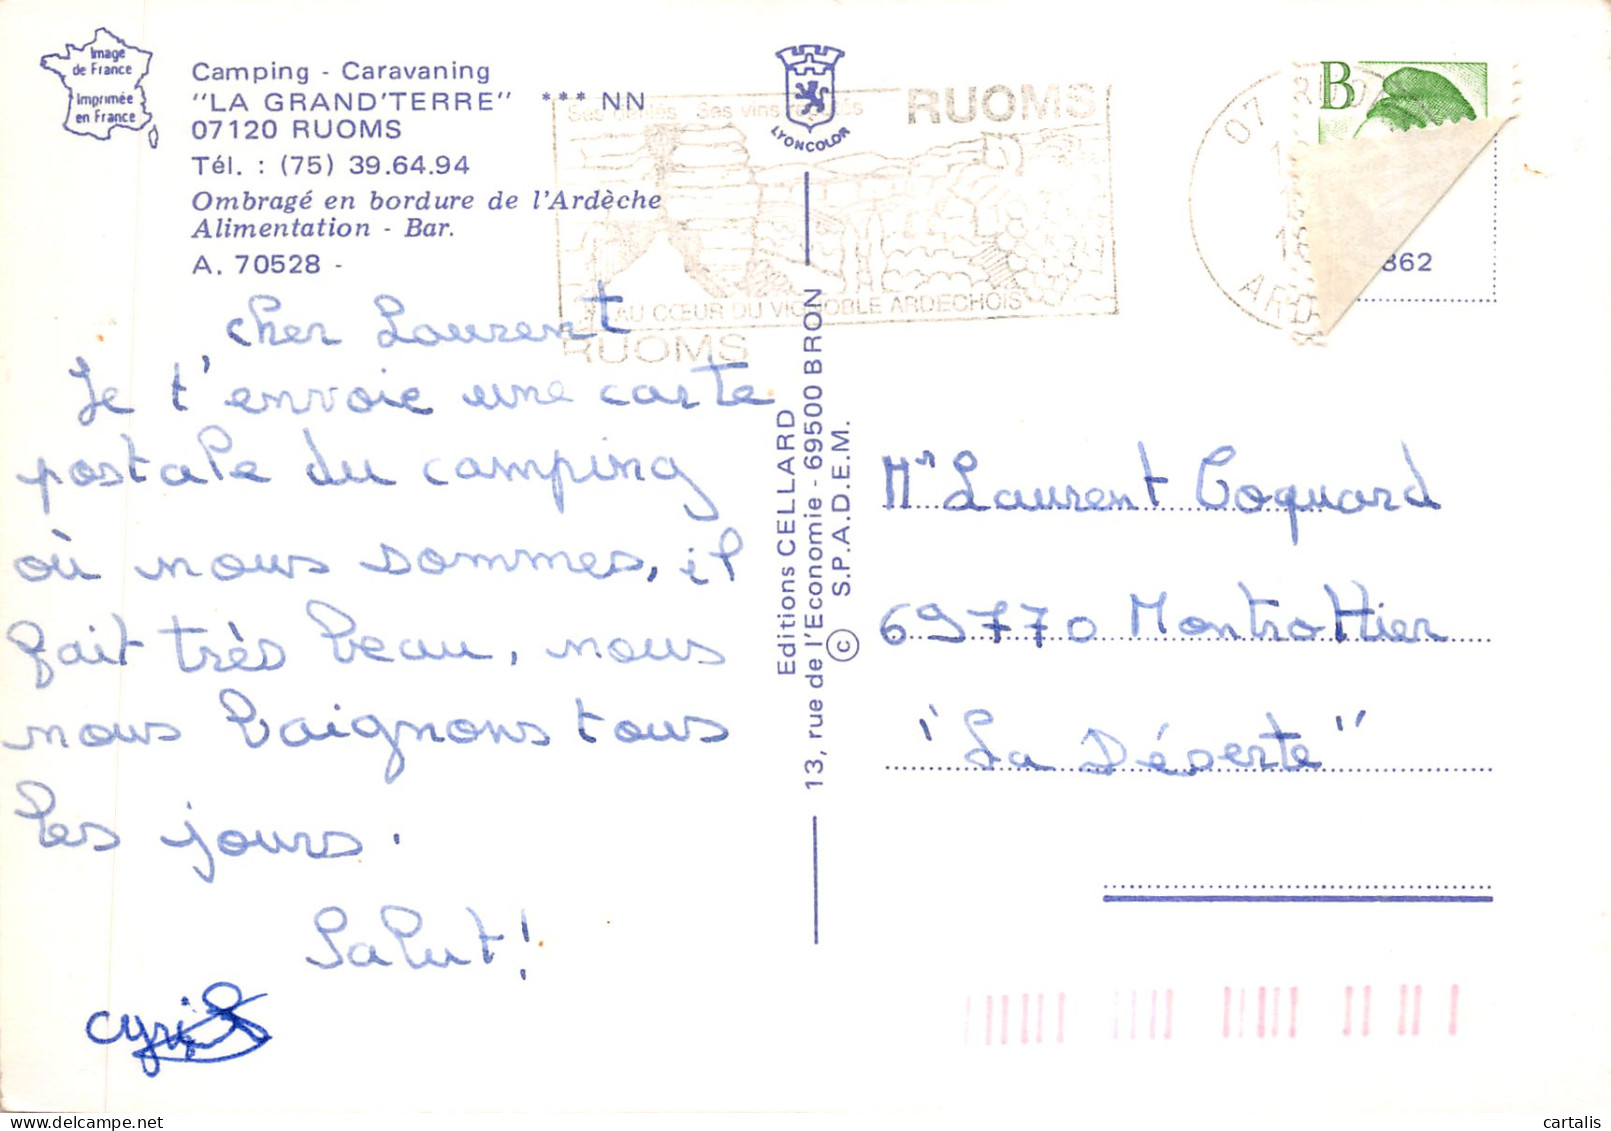 Image
de France
Imprimée
en France
Camping - Caravaning
"LA GRAND'TERRE" *** NN
07120 RUOMS
Tél. : (75) 39.64.94
Ombragé en bordure de l'Ardèche
Alimentation - Bar.
A. 70528 -
LYONCOLOR
RUOMS
Ses vins
AU CŒUR DU VIGNOBLE ARDECHOIS
RUOMS
07
ARD
B
862
cher Laurent
Je t'envoie une carte
postale du camping
où nous sommes, il
fait très beau, nous
nous baignons tous
les jours.
Salut!
Cyril
Editions CELLARD
13, rue de l'Economie - 69500 BRON
© S.P.A.D.E.M.
Mr Laurent Coquard
69770 Montrottier
"La Déserte"
cartalis